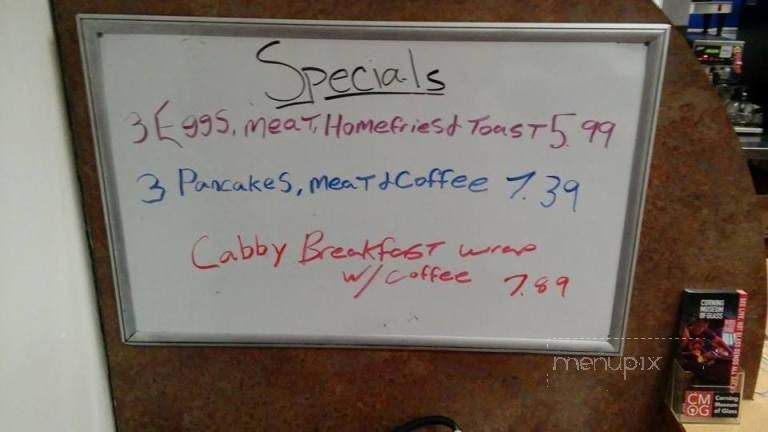 Specials
3 Eggs, meat, Homefries & Toast 5.99
3 Pancakes, meat & Coffee 7.39
Cabby Breakfast wrap
w/ coffee 7.89
menupix
CORNING
MUSEUM
OF GLASS
CM
OG
Corning
Museum
of Glass